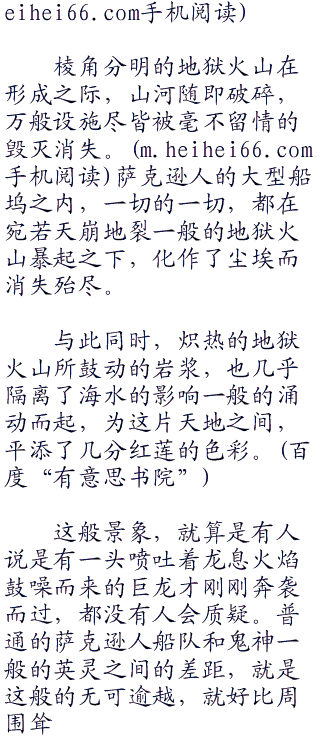 eihei66.com手机阅读)
棱角分明的地狱火山在
形成之际，山河随即破碎，
万般设施尽皆被毫不留情的
毁灭消失。(m.heihei66.com
手机阅读)萨克逊人的大型船
坞之内，一切的一切，都在
宛若天崩地裂一般的地狱火
山暴起之下，化作了尘埃而
消失殆尽。
与此同时，炽热的地狱
火山所鼓动的岩浆，也几乎
隔离了海水的影响一般的涌
动而起，为这片天地之间，
平添了几分红莲的色彩。(百
度“有意思书院”)
这般景象，就算是有人
说是有一头喷吐着龙息火焰
鼓噪而来的巨龙才刚刚奔袭
而过，都没有人会质疑。普
通的萨克逊人船队和鬼神一
般的英灵之间的差距，就是
这般的无可逾越，就好比周
围耸